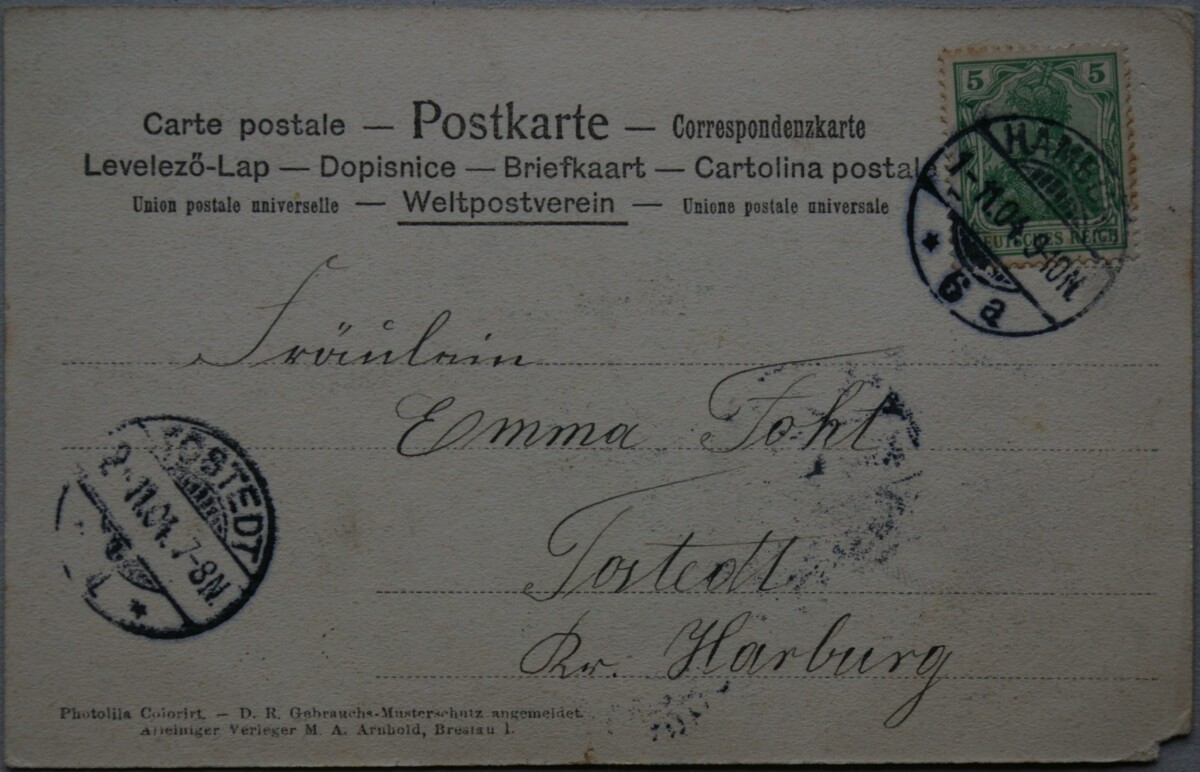 5 5
DEUTSCHES REICH
HAMB
1-11.04. 9-10N.
* 6 a
Carte postale — Postkarte — Correspondenzkarte
Levelező-Lap — Dopisnice — Briefkaart — Cartolina postale
Union postale universelle — Weltpostverein — Unione postale universale
Fräulein
Emma Foht
Tostedt
Kr. Harburg
TOSTEDT
2.11.04. 7-8N.
*
Photolila Colorirt. — D. R. Gebrauchs-Musterschutz angemeldet.
Alleiniger Verleger M. A. Arnhold, Breslau I.